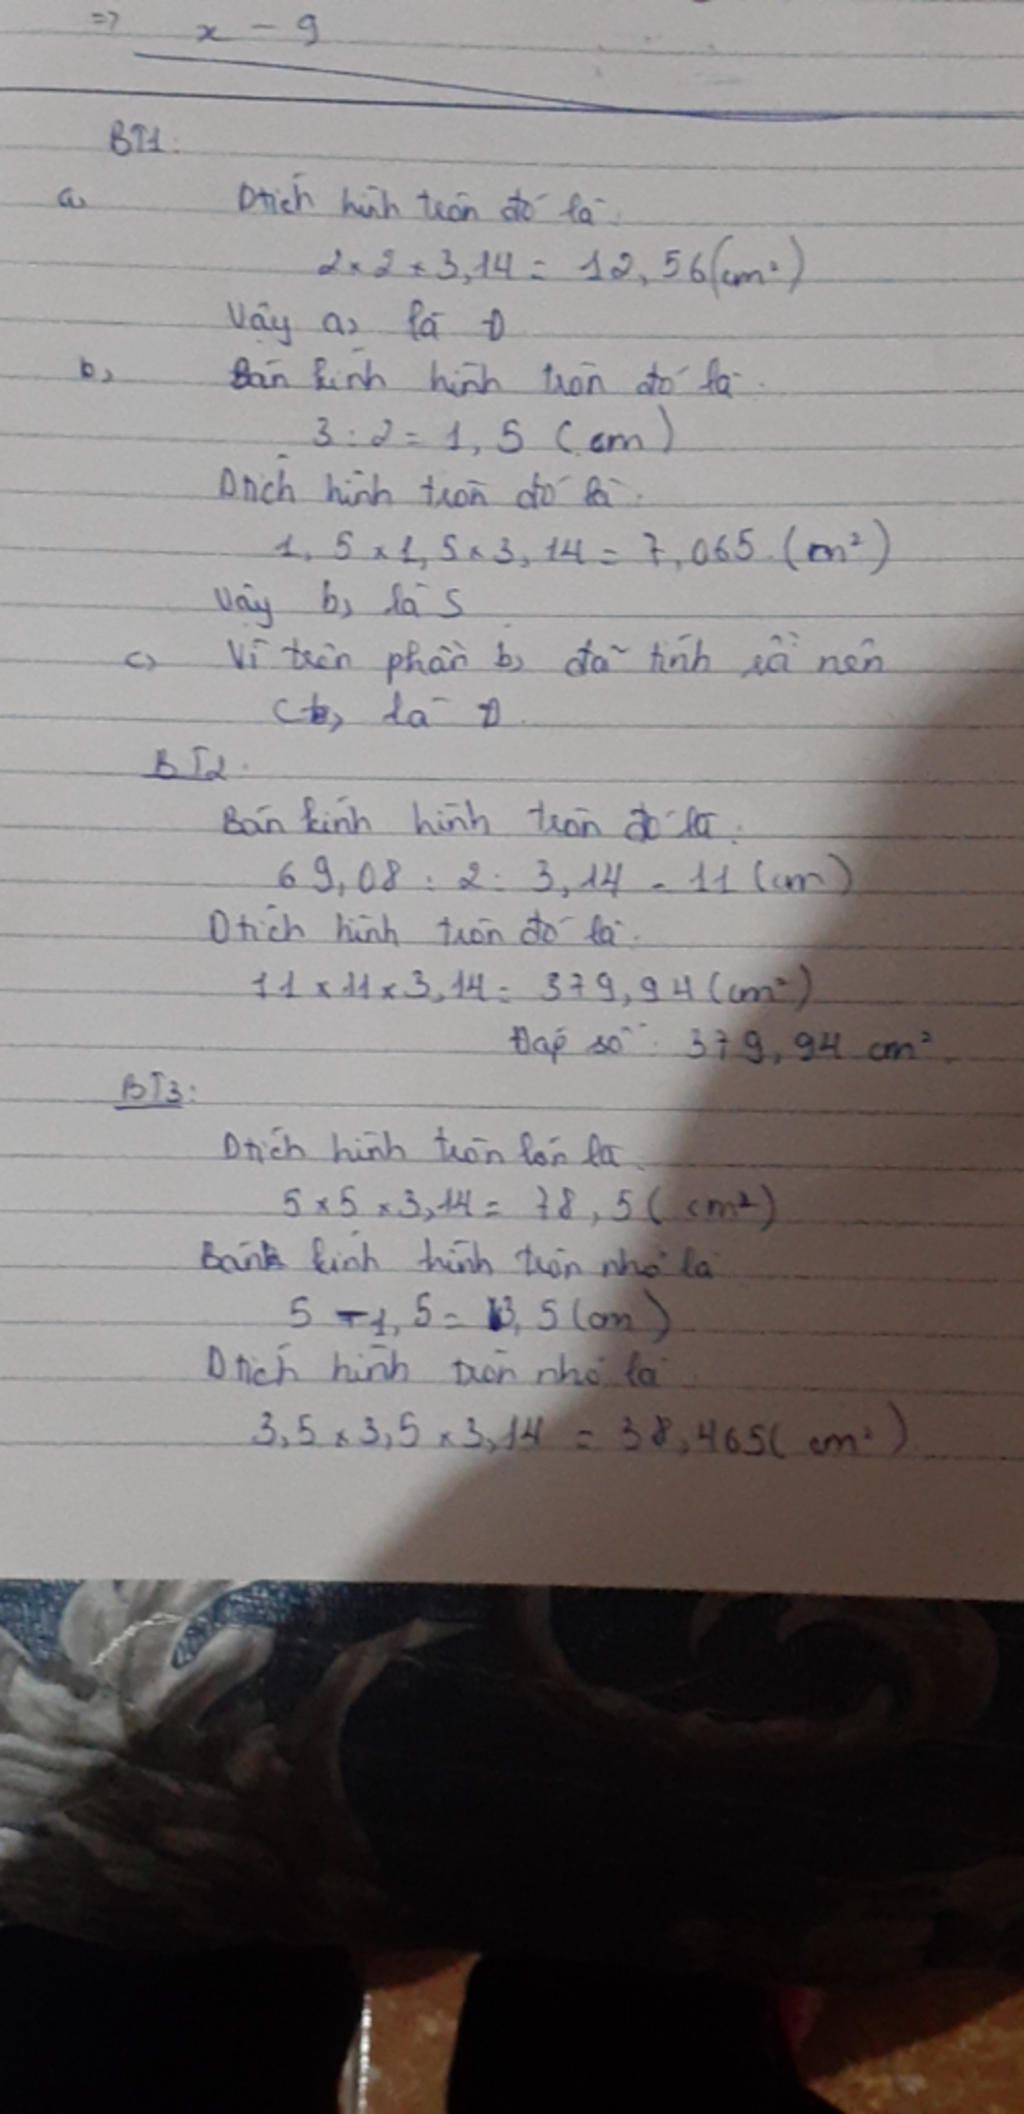 => x - 9
BT1:
a, Dtích hình tròn đó là:
2 x 2 x 3,14 = 12,56 (cm²)
Vậy a, là Đ
b, Bán kính hình tròn đó là:
3 : 2 = 1,5 (cm)
Dtích hình tròn đó là:
1,5 x 1,5 x 3,14 = 7,065 (m²)
Vậy b, là S
c, Vì trên phần b, đã tính rồi nên
c, là Đ.
BT2:
Bán kính hình tròn đó là:
69,08 : 2 : 3,14 = 11 (cm)
Dtích hình tròn đó là:
11 x 11 x 3,14 = 379,94 (cm²)
Đáp số: 379,94 cm².
BT3:
Dtích hình tròn lớn là
5 x 5 x 3,14 = 78,5 (cm²)
Bán kính hình tròn nhỏ là
5 - 1,5 = 3,5 (cm)
Dtích hình tròn nhỏ là
3,5 x 3,5 x 3,14 = 38,465 (cm²)